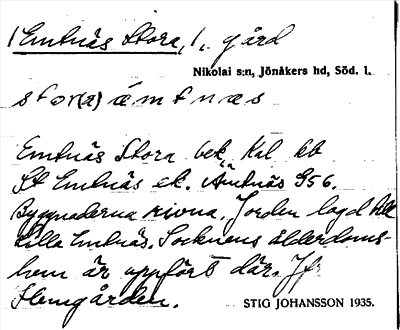 Emtnäs Stora, 1, gård
Nikolai s:n, Jönåkers hd, Söd. l.
stor(a) ämtnæs
Emtnäs Stora bek, Kal kb
St Emtnäs ek. Ämtnäs G56.
Byggnaderna rivna. Jorden lagd till
Lilla Emtnäs. Socknens ålderdoms-
hem är uppfört där. Jfr
Hemgården.
STIG JOHANSSON 1935.